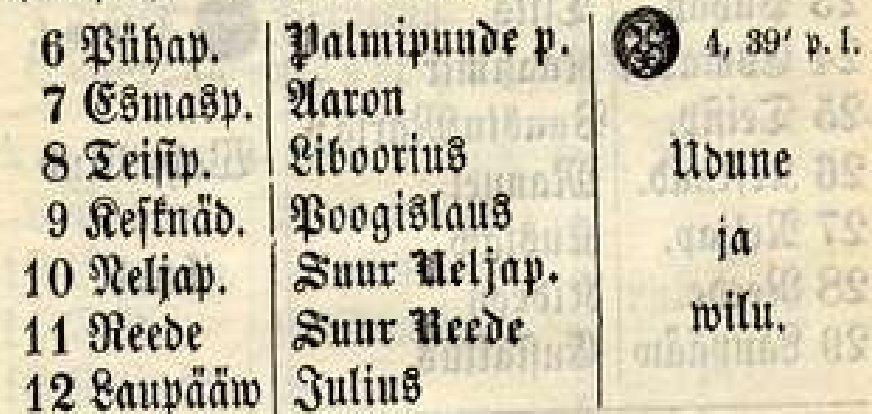 6 Pühap. Palmipunde p. 4, 39' p. l.
7 Esmasp. Aaron
8 Teisip. Liboorius Udune
9 Kesknäd. Poogislaus ja
10 Neljap. Suur Neljap.
11 Reede Suur Reede wilu.
12 Laupääw Julius